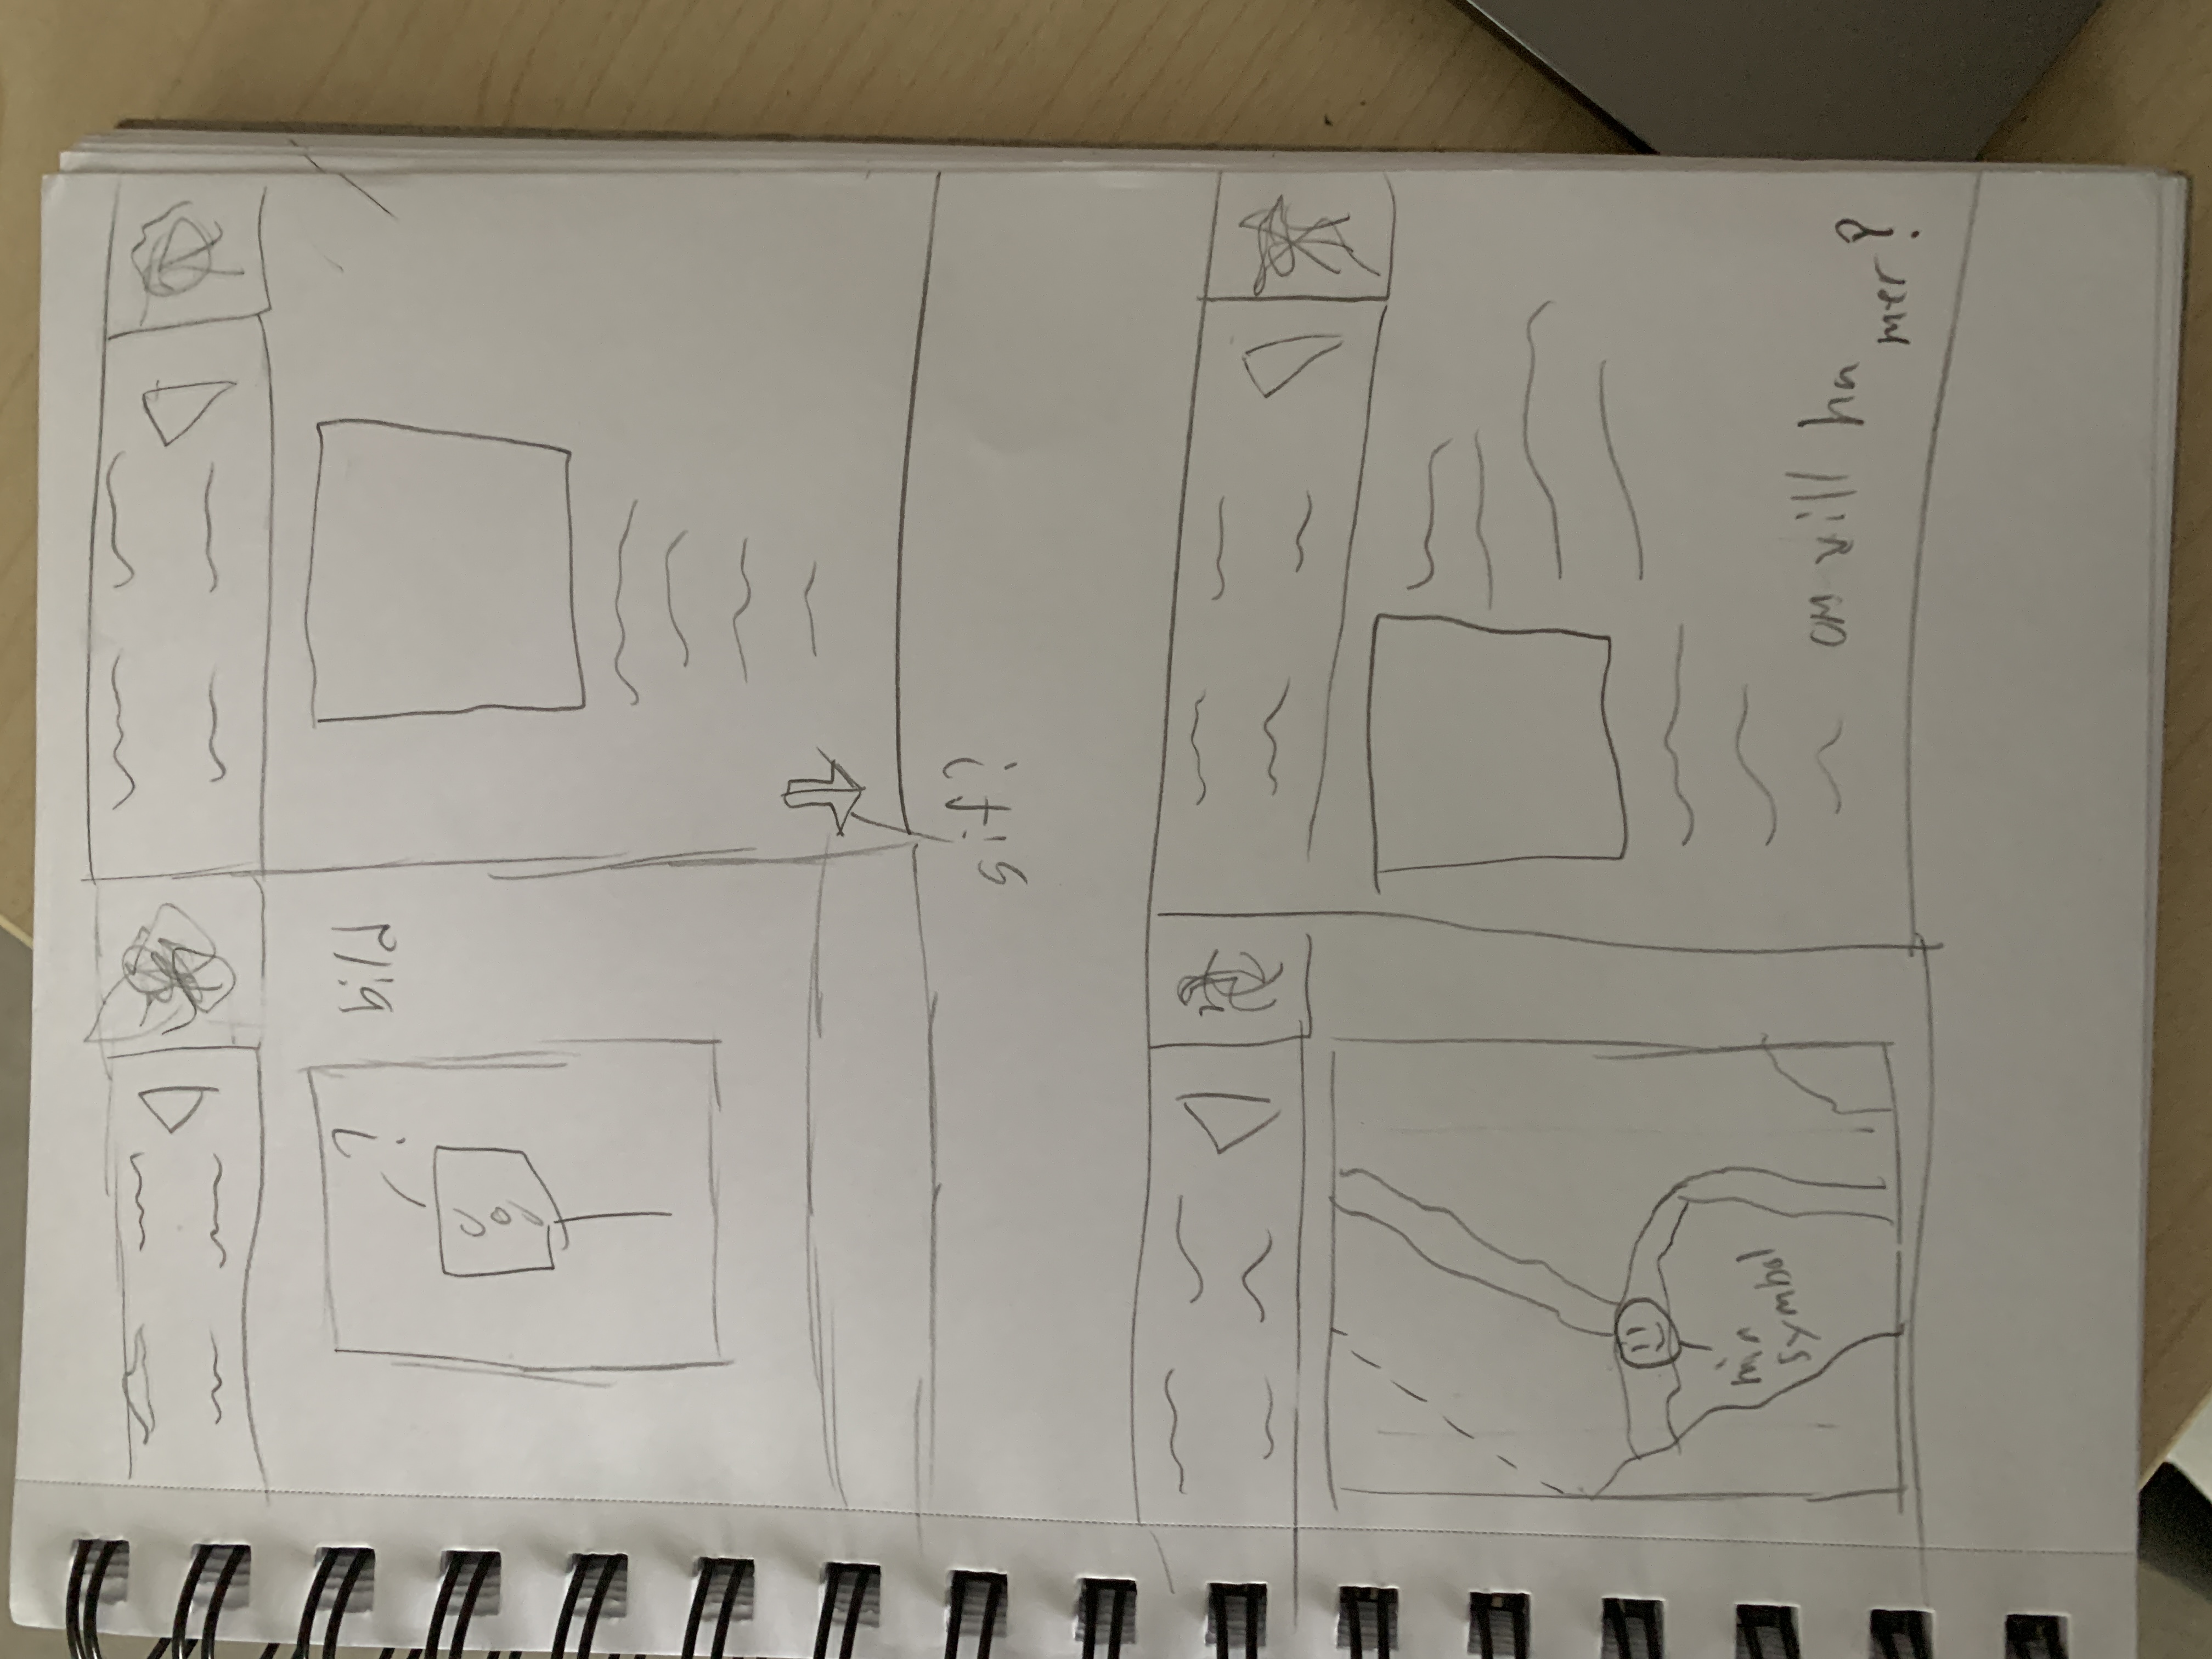 ?
bild
gif?
min
symbol
om vill ha
mer?